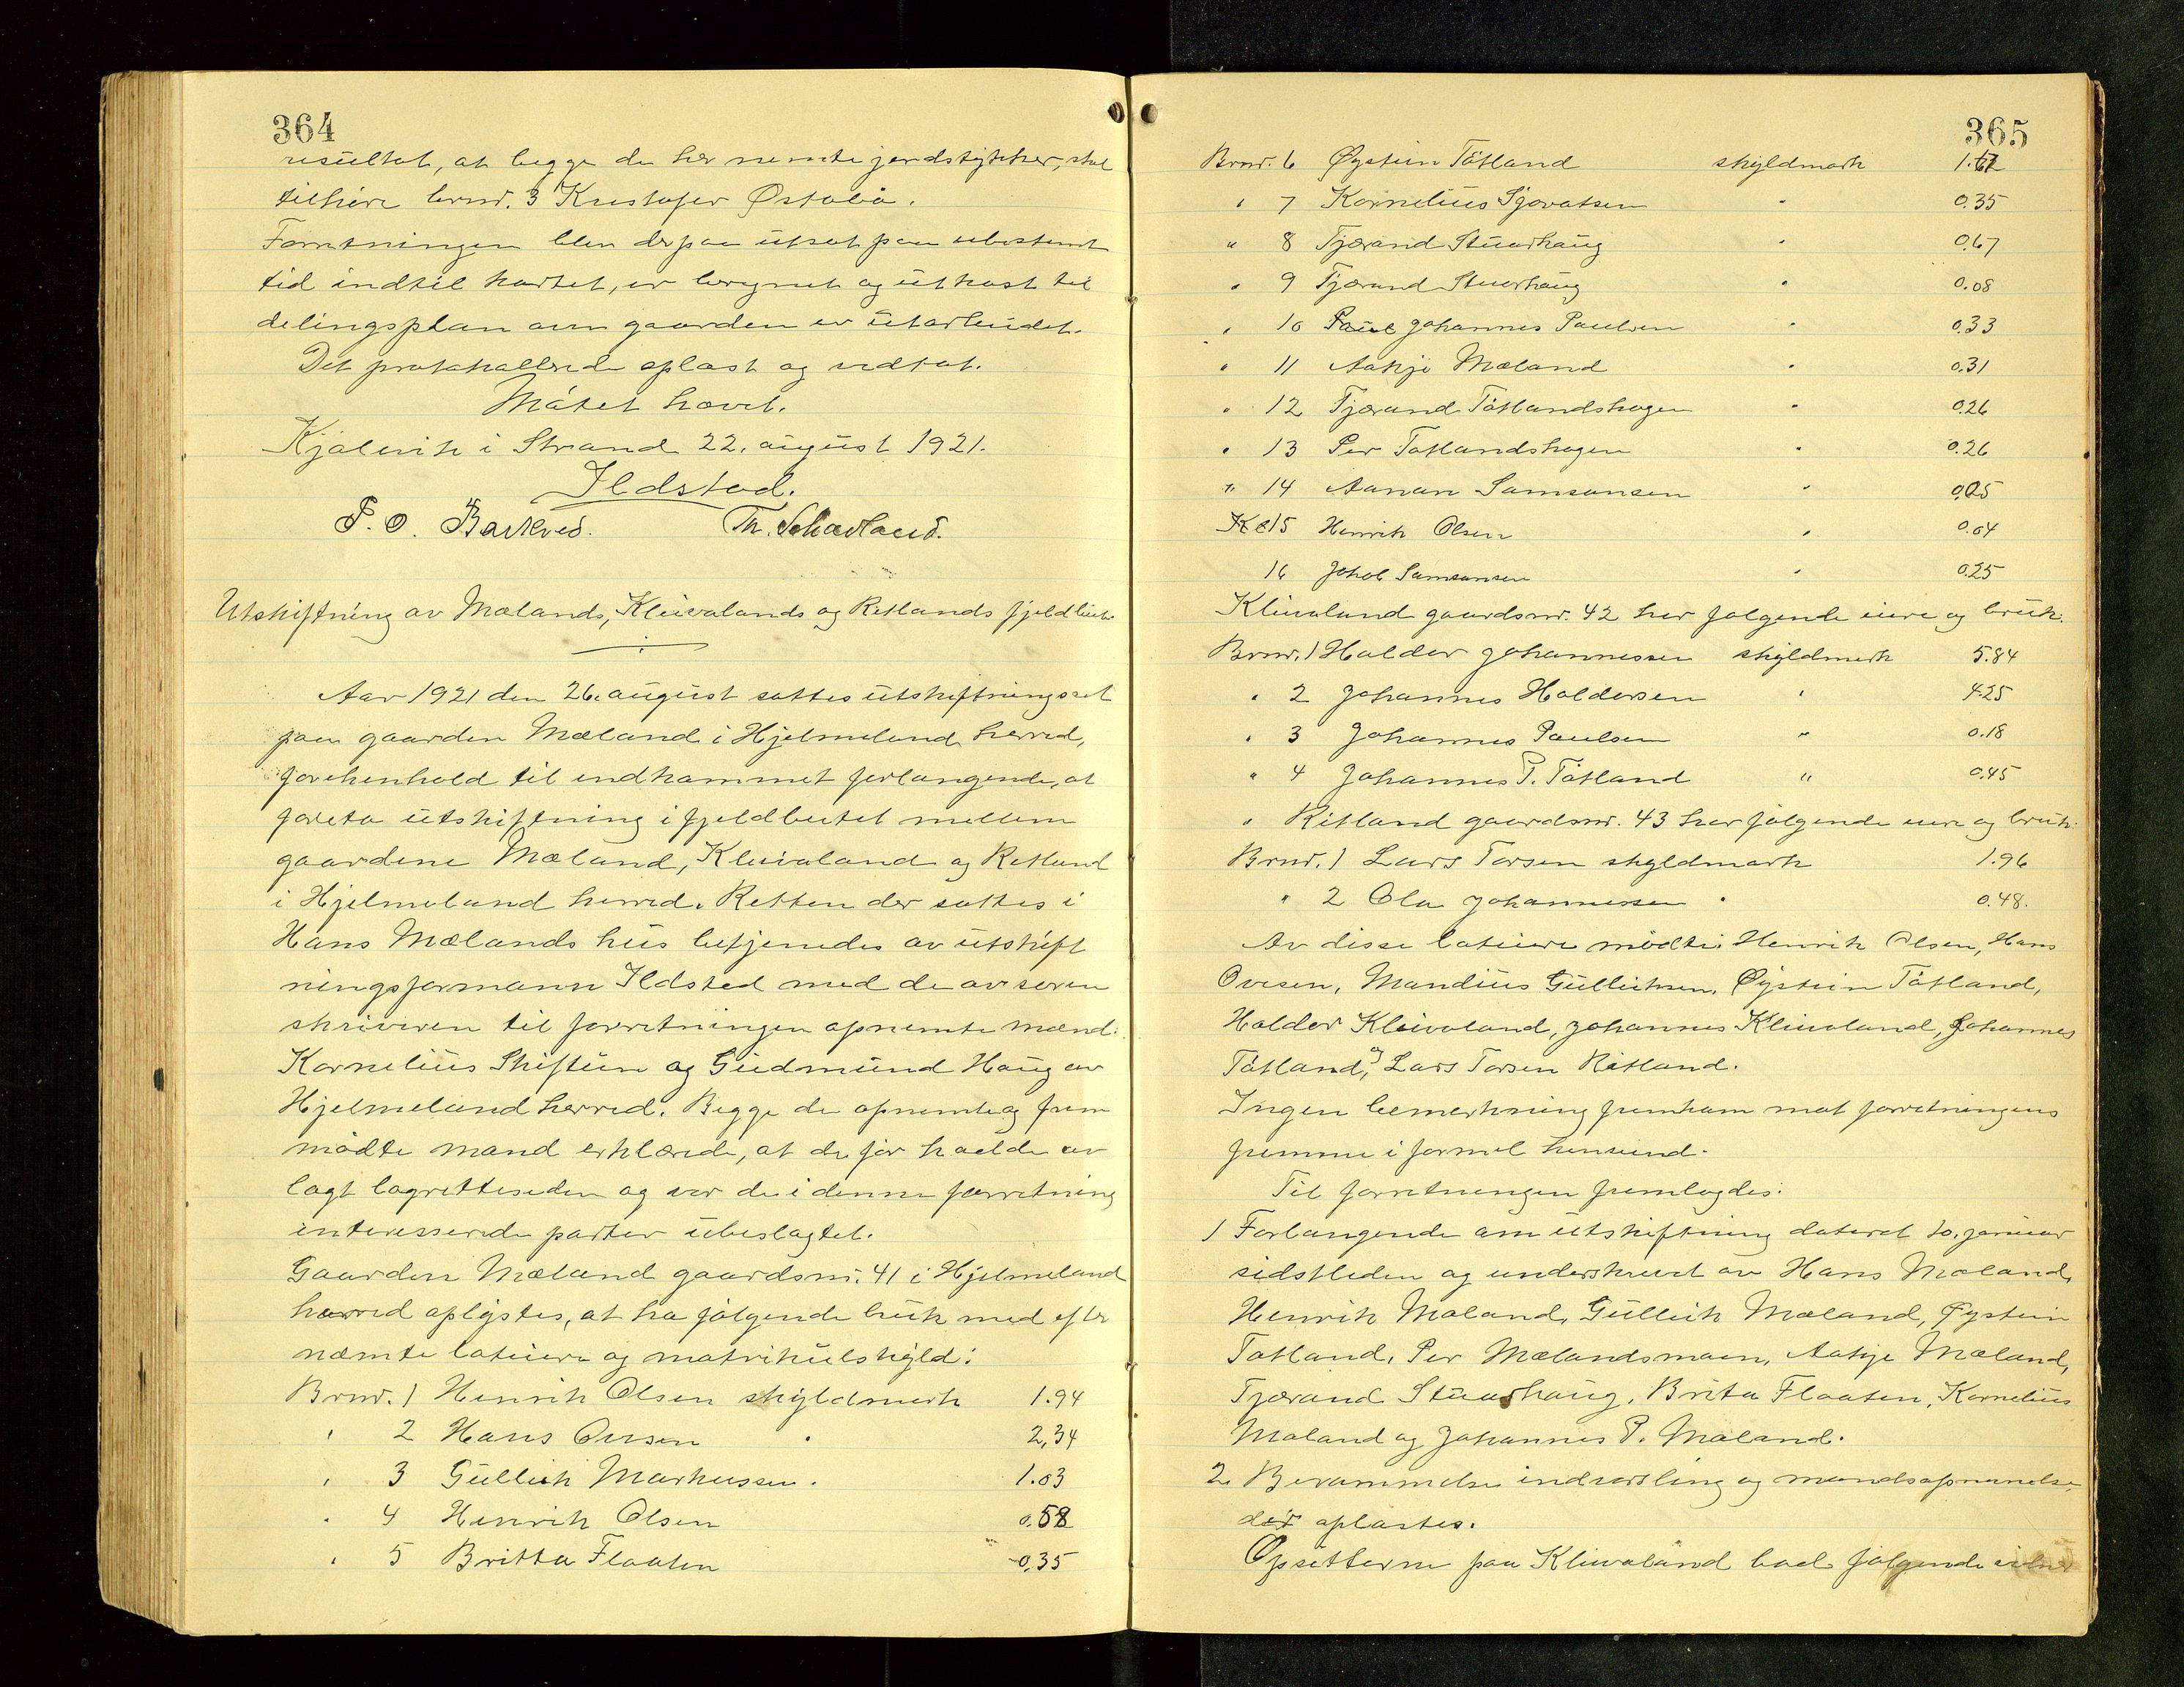 364
resultat, at begge de her nemte jordstykker, skal
tilhøre brnr. 3 Kristofer Østabø.
Forretningen blev derpaa utsat paa ubestemt
tid indtil kartet, er beregnet og utkast til
delingsplan over gaarden er utarbeidet.
Det protokollerede oplæst og vedtat.
Møtet hævet.
Kjølevik i Strand 22. august 1921.
Ildstad.
P. O. Barkved. Th. Schavland.
Utskiftning av Mælands, Kleivalands og Retlands fjeldbeite.
Aar 1921 den 26. august sattes utskiftningsret
paa gaarden Mæland i Hjelmeland herred,
forehenhold til indkommet forlangende, at
foreta utskiftning i fjeldbeitet mellem
gaardene Mæland, Kleivaland og Retland
i Hjelmeland herred. Retten der sattes i
Hans Mælands hus betjenedes av utskift
ningsformann Ildsted med de av soren
skriveren til forretningen opnemte mænd:
Kornelius Skiftun og Gudmund Haug av
Hjelmeland herred. Begge de opnemte og frem
mødte mænd erklærede, at de før hadde av
lagt lagretteseden og var de i denne forretning
interesserede parter ubeslagtet.
Gaarden Mæland gaardsnr. 41 i Hjelmeland
herred oplystes, at ha følgende bruk med efter
næmte lateiere og matrikulskyld:
Brnr. 1 Henrik Olsen skyldmark 1.94
" 2 Hans Ovesen " 2,34
" 3 Gullich Markussen " 1.03
" 4 Henrik Olsen 0.58
" 5 Britta Flaaten 0.35
365
Brnr. 6 Øystein Tøtland skyldmark 1.62
" 7 Kornelius Sjovatsen " 0.35
" 8 Tjærand Stuarhaug " 0.67
" 9 Tjærand Stuarhaug " 0.08
" 10 Paul Johannes Paulsen " 0.33
" 11 Aatje Mæland " 0.31
" 12 Tjærand Tøtlandshagen " 0.26
" 13 Per Tøtlandshagen " 0.26
" 14 Aanan Samsonsen " 0.05
Kl 15 Henrik Olsen " 0.04
16 Jakob Samsonsen " 0.25
Kleivaland gaardsnr. 42 har følgende eiere og bruk:
Brnr. 1 Haldor Johannessen skyldmark 5.84
" 2 Johannes Haldorsen " 4.25
" 3 Johannes Paulsen " 0.18
" 4 Johannes P. Tøtland " 0.45
" Ritland gaardsnr. 43 har følgende eiere og bruk:
Brnr. 1 Lars Torsen skyldmark 1.96
" 2 Ola Johannessen " 0.48.
Av disse lateiere mødte: Henrik Olsen, Hans
Ovesen, Mandius Gullichsen, Øystein Tøtland,
Haldor Kleivaland, Johannes Kleivaland, Johannes
Tøtland, og Lars Torsen Ritland.
Ingen bemerkning fremkom mot forretningens
fremme i formel henseend.
Til forretningen fremlagdes:
1 Forlangende om utskiftning dateret 10. januar
sidstleden og underskrevet av Hans Mæland,
Henrik Mæland, Gullich Mæland, Øystein
Tøtland, Per Mælandsmoen, Aatje Mæland,
Tjærand Stuarhaug, Brita Flaaten, Kornelius
Mæland og Johannes P. Mæland.
2. Berammelse indvarsling og mandsopnævnelse,
der oplæstes.
Opsitterne paa Kleivaland bad følgende